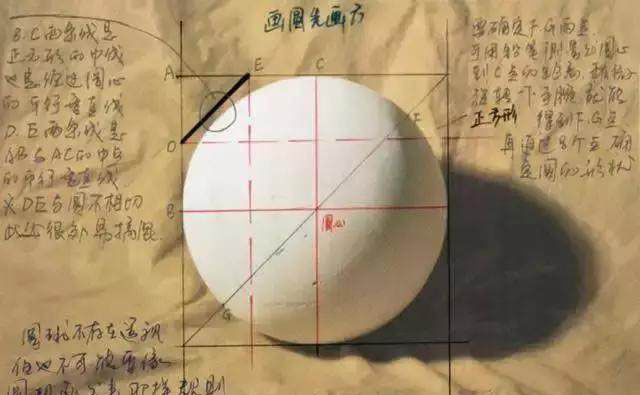 画圆先画方
B.C两条线是
正方形的中线
也是经过圆心
的平行垂直线
D.E两条线是
AB与AC的中点
的平行垂直线
※DE与圆不相切
此处很容易搞混
要确定F.G两点
可用铅笔测量出圆心
到C点的距离,再
旋转一下手腕就能
得到F.G点
正方形
再通过8个点确
定圆的形状
A
E
C
F
D
B
圆心
G
圆球不存在透视
但也不可能要像
圆规画出来那样规则